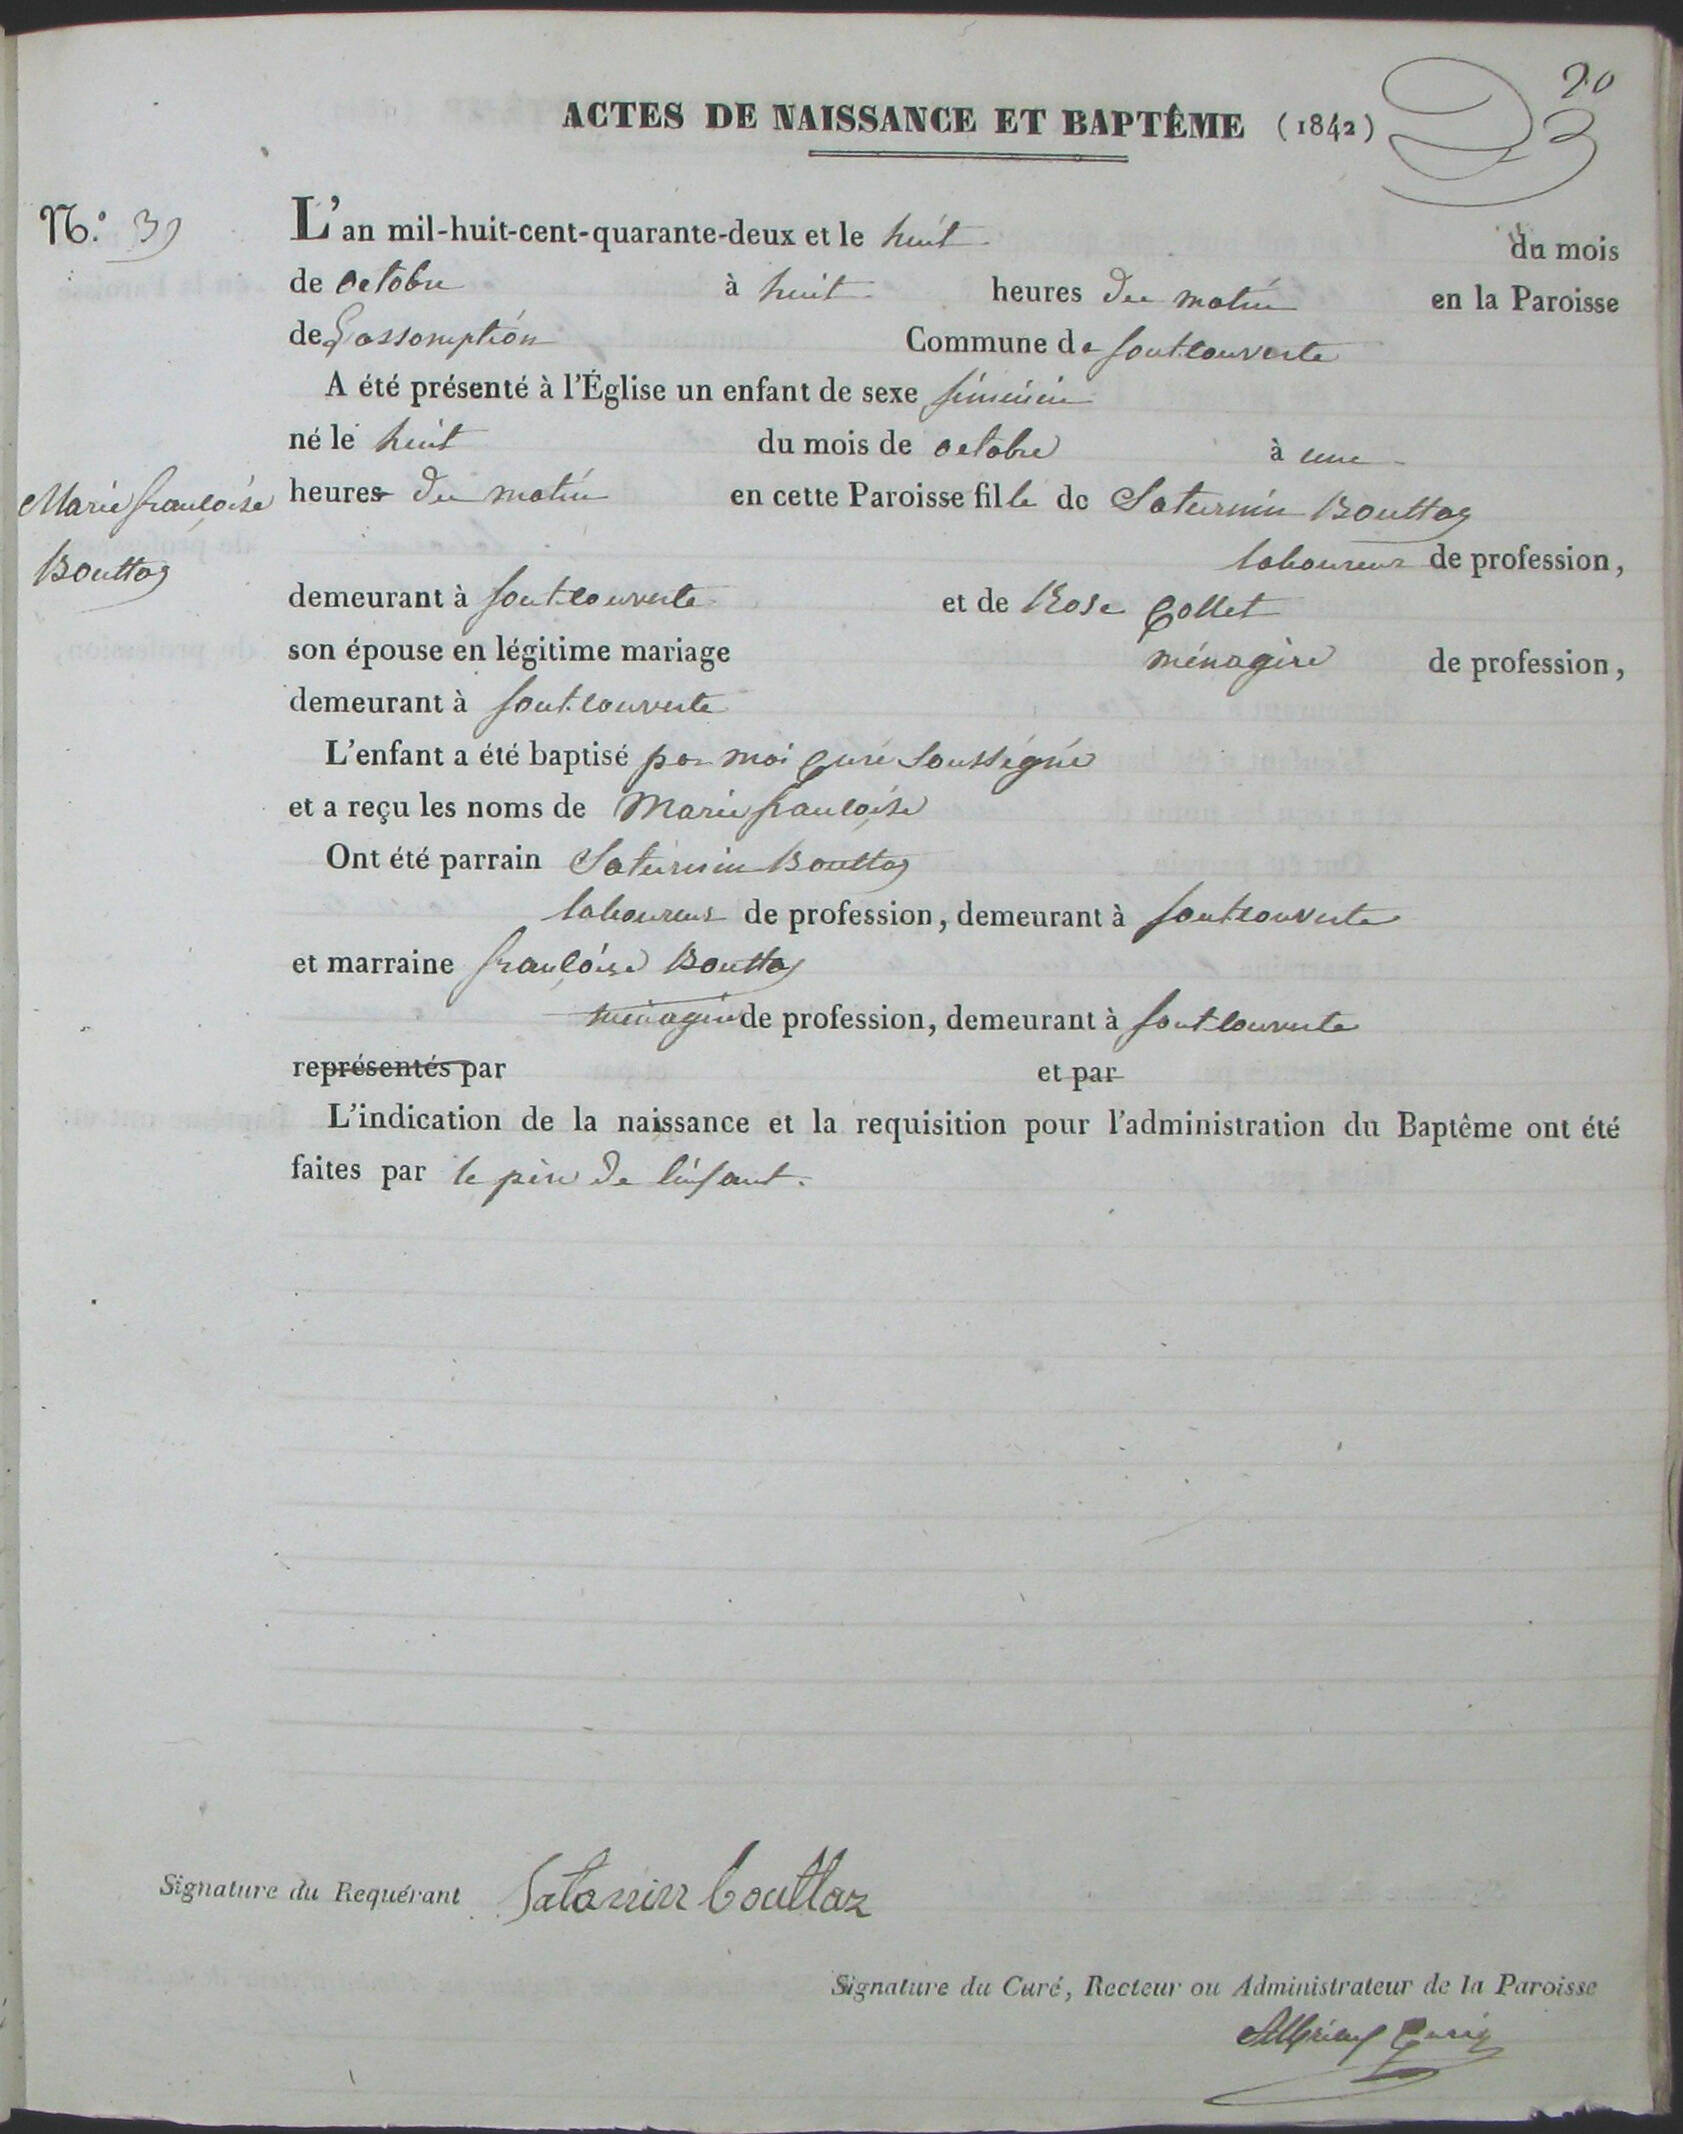 20
ACTES DE NAISSANCE ET BAPTÊME (1842)
N.º 39
L'an mil-huit-cent-quarante-deux et le huit du mois
de octobre à huit heures du matin en la Paroisse
de L'assomption Commune de fontcouverte
A été présenté à l'Église un enfant de sexe féminin
né le huit du mois de octobre à une
heures du matin en cette Paroisse fille de Saturnin Bouttaz
Marie françoise
Bouttaz
laboureur de profession,
demeurant à fontcouverte et de Rose Collet
son épouse en légitime mariage ménagère de profession,
demeurant à fontcouverte
L'enfant a été baptisé par moi Curé soussigné
et a reçu les noms de Marie françoise
Ont été parrain Saturnin Bouttaz
laboureur de profession, demeurant à fontcouverte
et marraine françoise Bouttaz
ménagère de profession, demeurant à fontcouverte
représentés par et par
L'indication de la naissance et la requisition pour l'administration du Baptême ont été
faites par le père de l'enfant.
Signature du Requérant Satarnin bouttaz
Signature du Curé, Recteur ou Administrateur de la Paroisse
Curé